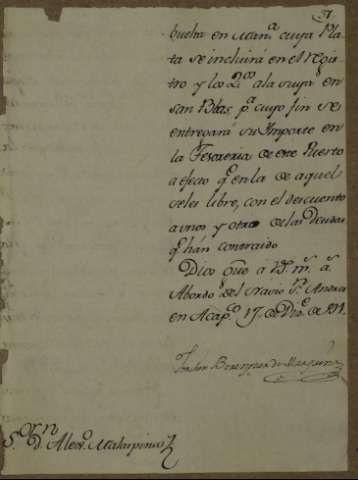 37
buelta en Man.ª cuya Pla
ta se incluirá en el regis
tro y los 2.os a la suya en
san Blas, p.ª cuyo fin se
entregará su Importe en
la Tesoreria de este Puerto
a efecto q.e en la de aquel
se les libre, con el descuento
a unos y otros de las Deudas
q.e hán contraido
Dios gûe a Vd. m.s a.s
Abordo del Navio S.n Andres
en Acap.co 17, de D.re de 791.
S.or D.n Alex.o Malaspina